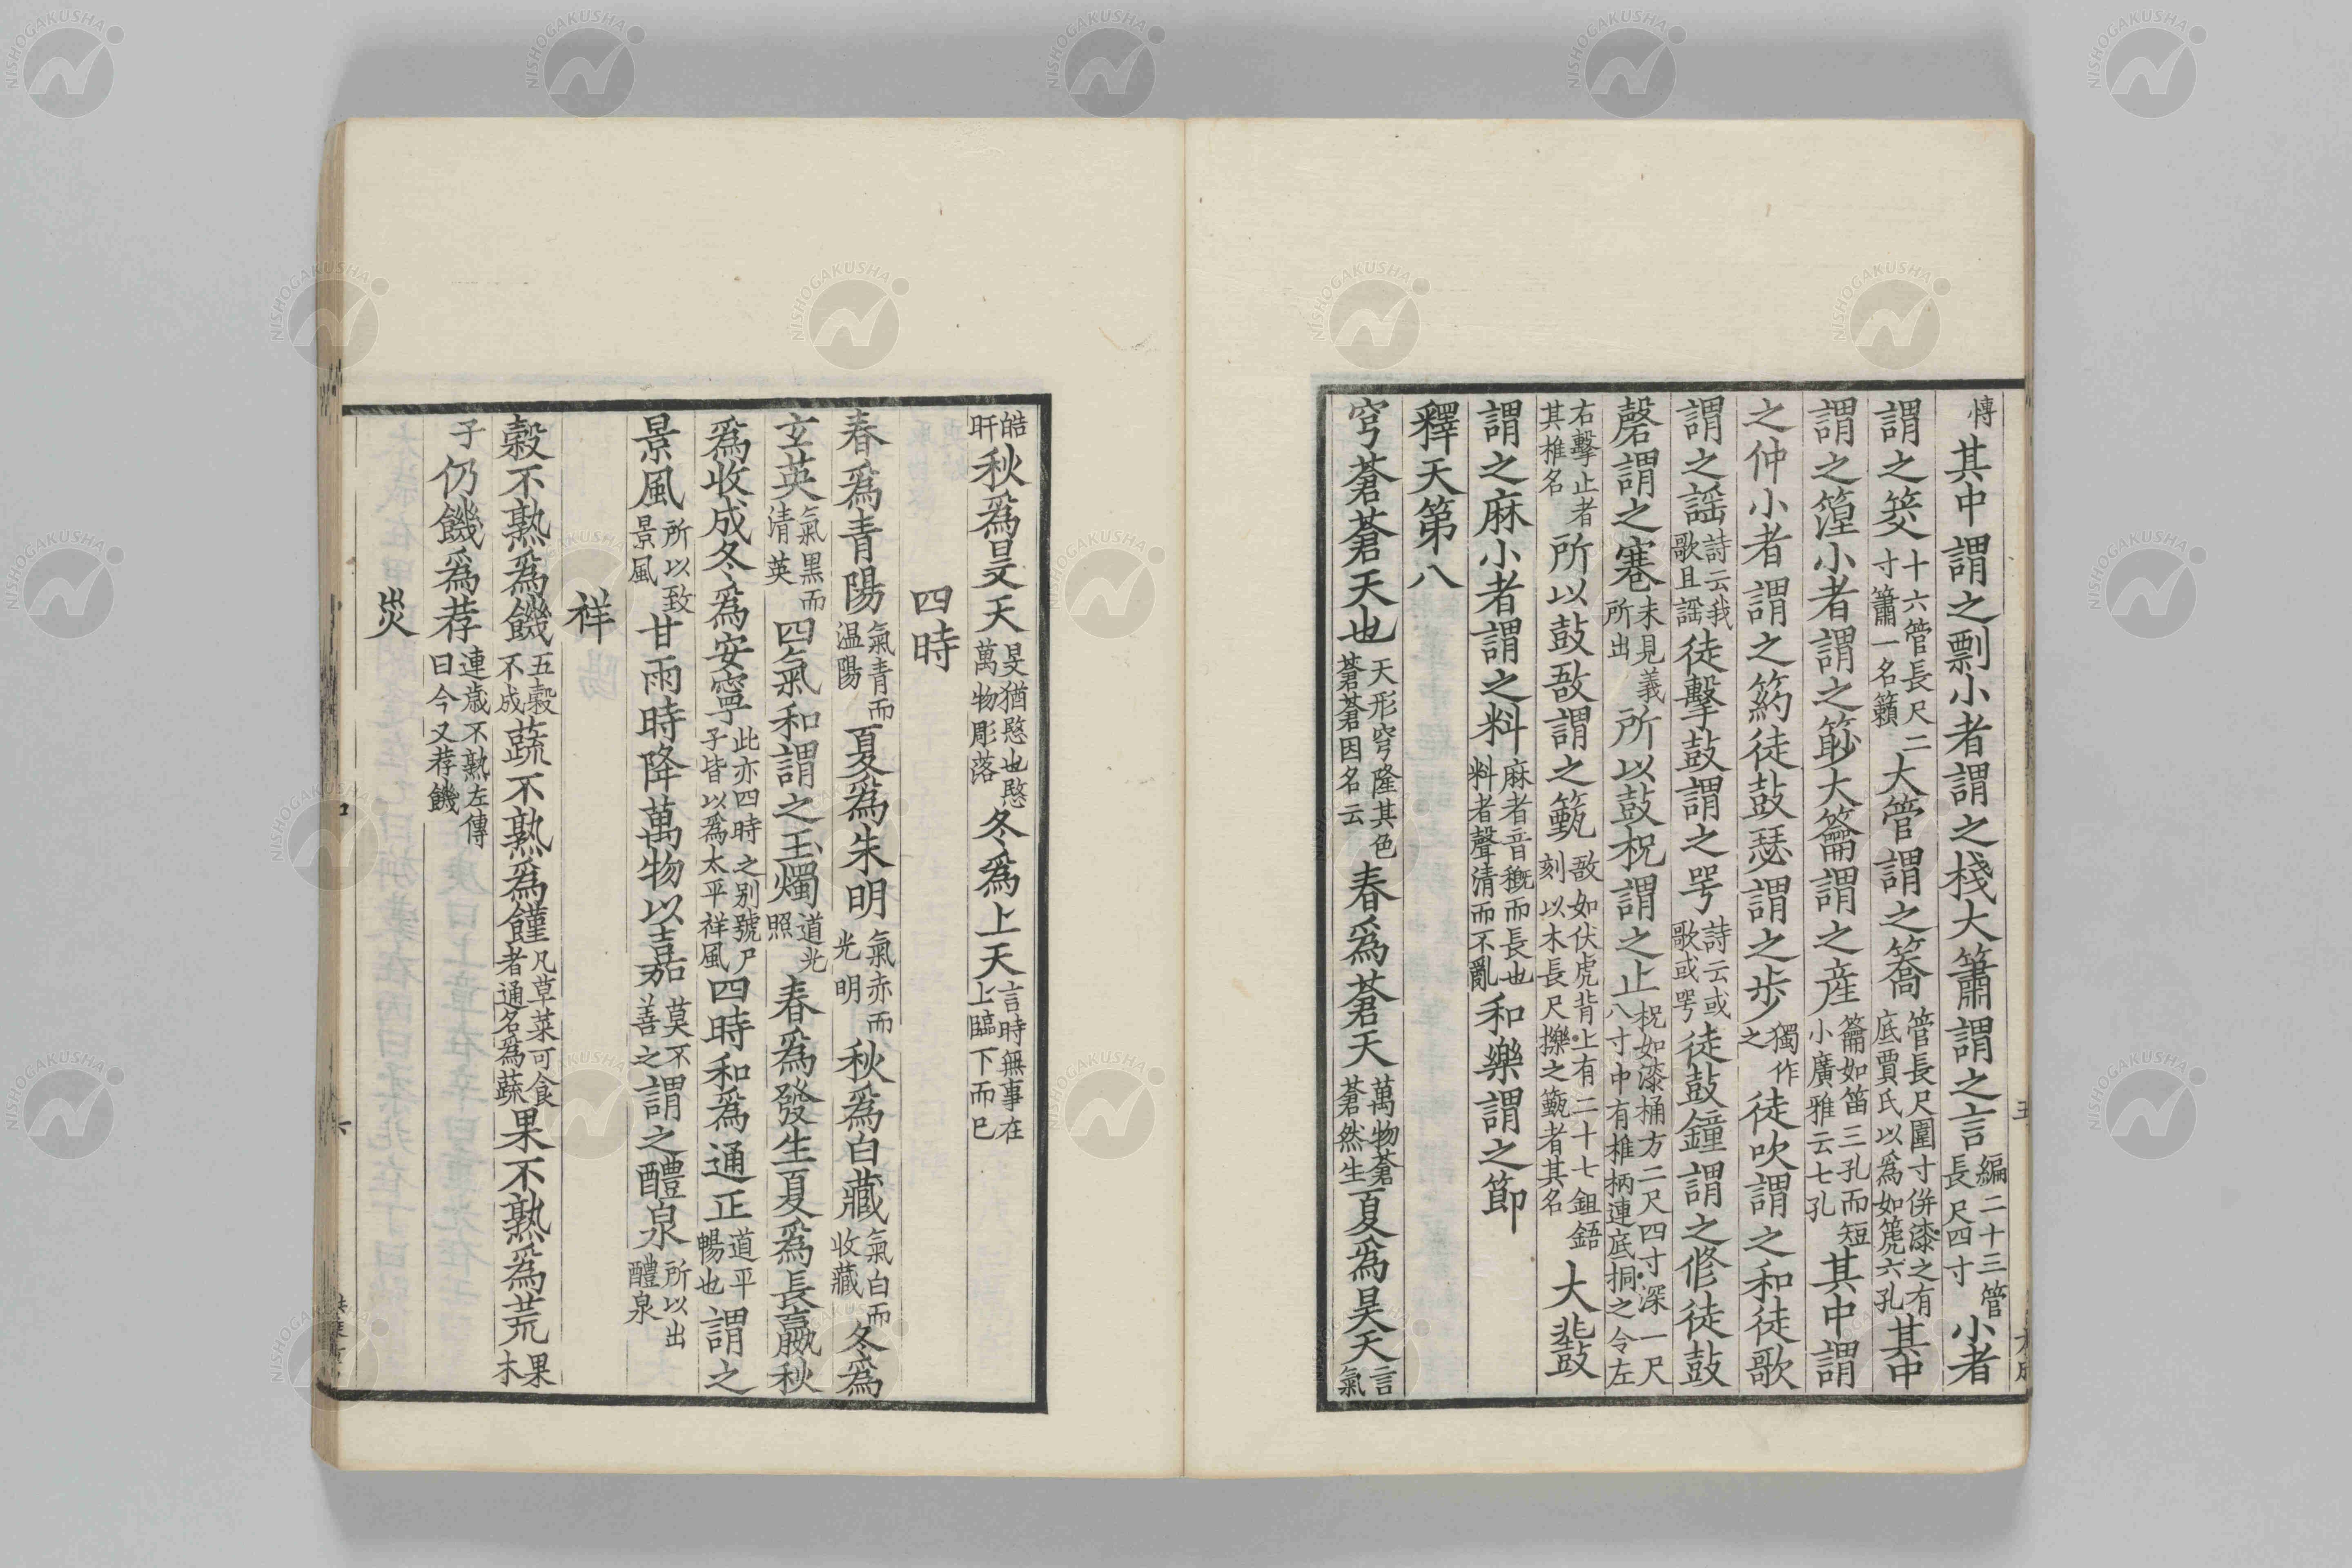 慱其中謂之剽小者謂之棧大簫謂之言編二十三管長尺四寸小者
謂之筊十六管長尺二寸簫一名籟大管謂之簥管長尺圍寸併漆之有底賈氏以爲如篪六孔其中
謂之篞小者謂之篎大籥謂之産籥如笛三孔而短小廣雅云七孔其中謂
之仲小者謂之箹徒鼓瑟謂之步獨作之徒吹謂之和徒歌
謂之謡詩云我歌且謡徒擊鼓謂之咢詩云或歌或咢徒鼓鐘謂之修徒鼓
磬謂之寋未見義所出所以鼓柷謂之止柷如漆桶方二尺四寸深一尺八寸中有椎柄連底挏之令左
右擊止者其椎名所以鼓敔謂之籈敔如伏虎背上有二十七鉏鋙刻以木長尺擽之籈者其名大鼗
謂之麻小者謂之料麻者音概而長也料者聲清而不亂和樂謂之節
釋天第八
穹蒼蒼天也天形穹隆其色蒼蒼因名云春爲蒼天萬物蒼蒼然生夏爲昊天言氣
皓旰秋爲旻天旻猶愍也愍萬物彫落冬爲上天言時無事在上臨下而已
四時
春爲青陽氣青而温陽夏爲朱明氣赤而光明秋爲白藏氣白而收藏冬爲
玄英氣黒而清英四氣和謂之玉燭道光照春爲發生夏爲長嬴秋
爲收成冬爲安寧此亦四時之别號尸子皆以爲太平祥風四時和爲通正道平暢也謂之
景風所以致景風甘雨時降萬物以嘉莫不善之謂之醴泉所以出醴泉
祥
穀不熟爲饑五穀不成蔬不熟爲饉凡草菜可食者通名爲蔬果不熟爲荒果木
子仍饑爲荐連歳不熟左傳曰今又荐饑
災